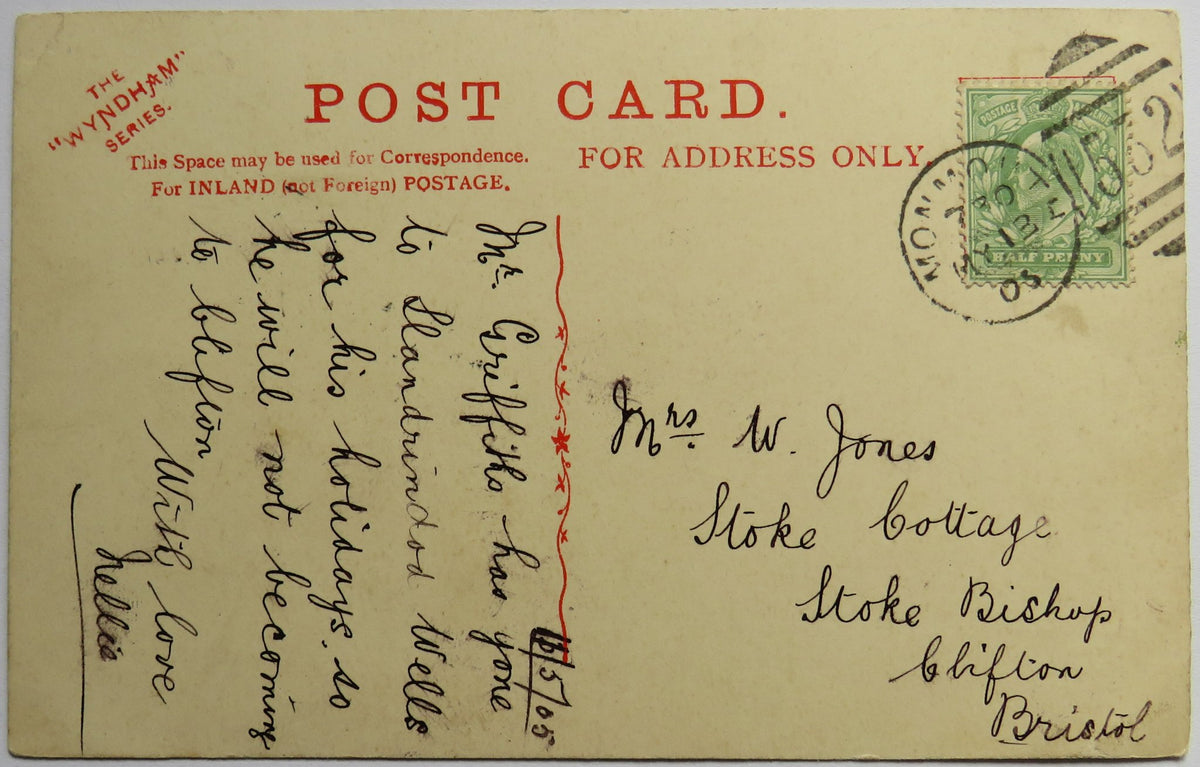 THE
"WYNDHAM"
SERIES.
POST CARD.
This Space may be used for Correspondence.
For INLAND (not Foreign) POSTAGE.
FOR ADDRESS ONLY.
POSTAGE
HALF PENNY
MONMO
MY 13
05
13/5/05
Mr. Griffiths has gone
to Llandrindod Wells
for his holidays. so
he will not becoming
to Clifton
With love
Nellie
Mrs W. Jones
Stoke Cottage
Stoke Bishop
Clifton
Bristol